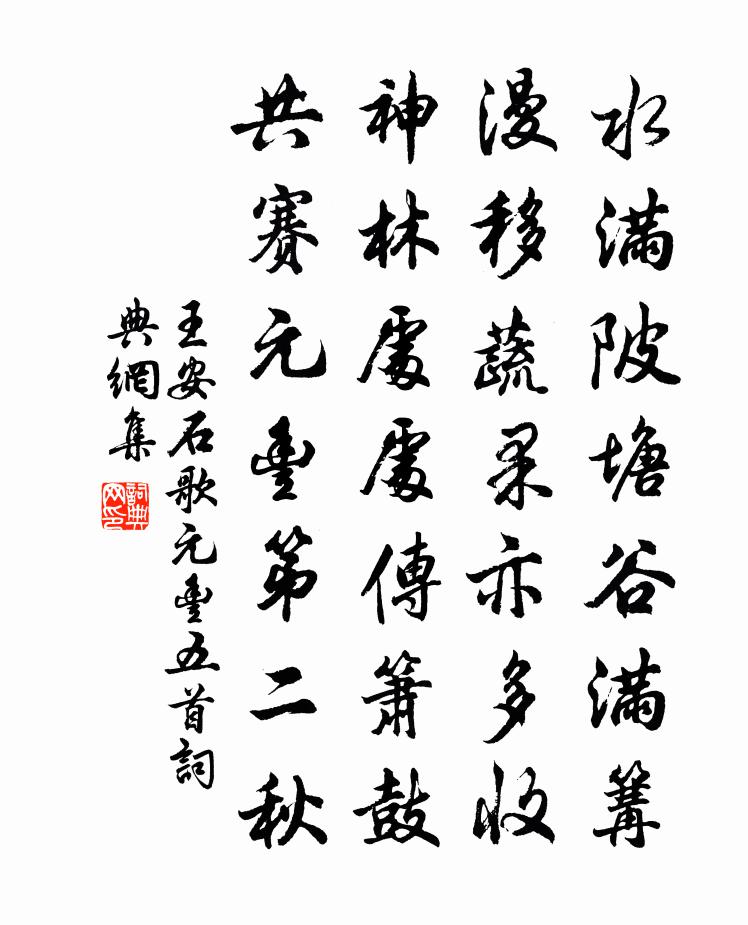 水滿陂塘谷滿篝
漫移蔬果亦多收
神林處處傳簫鼓
共賽元豐第二秋
王安石歌元豐五首詞
典網集
詞典網印